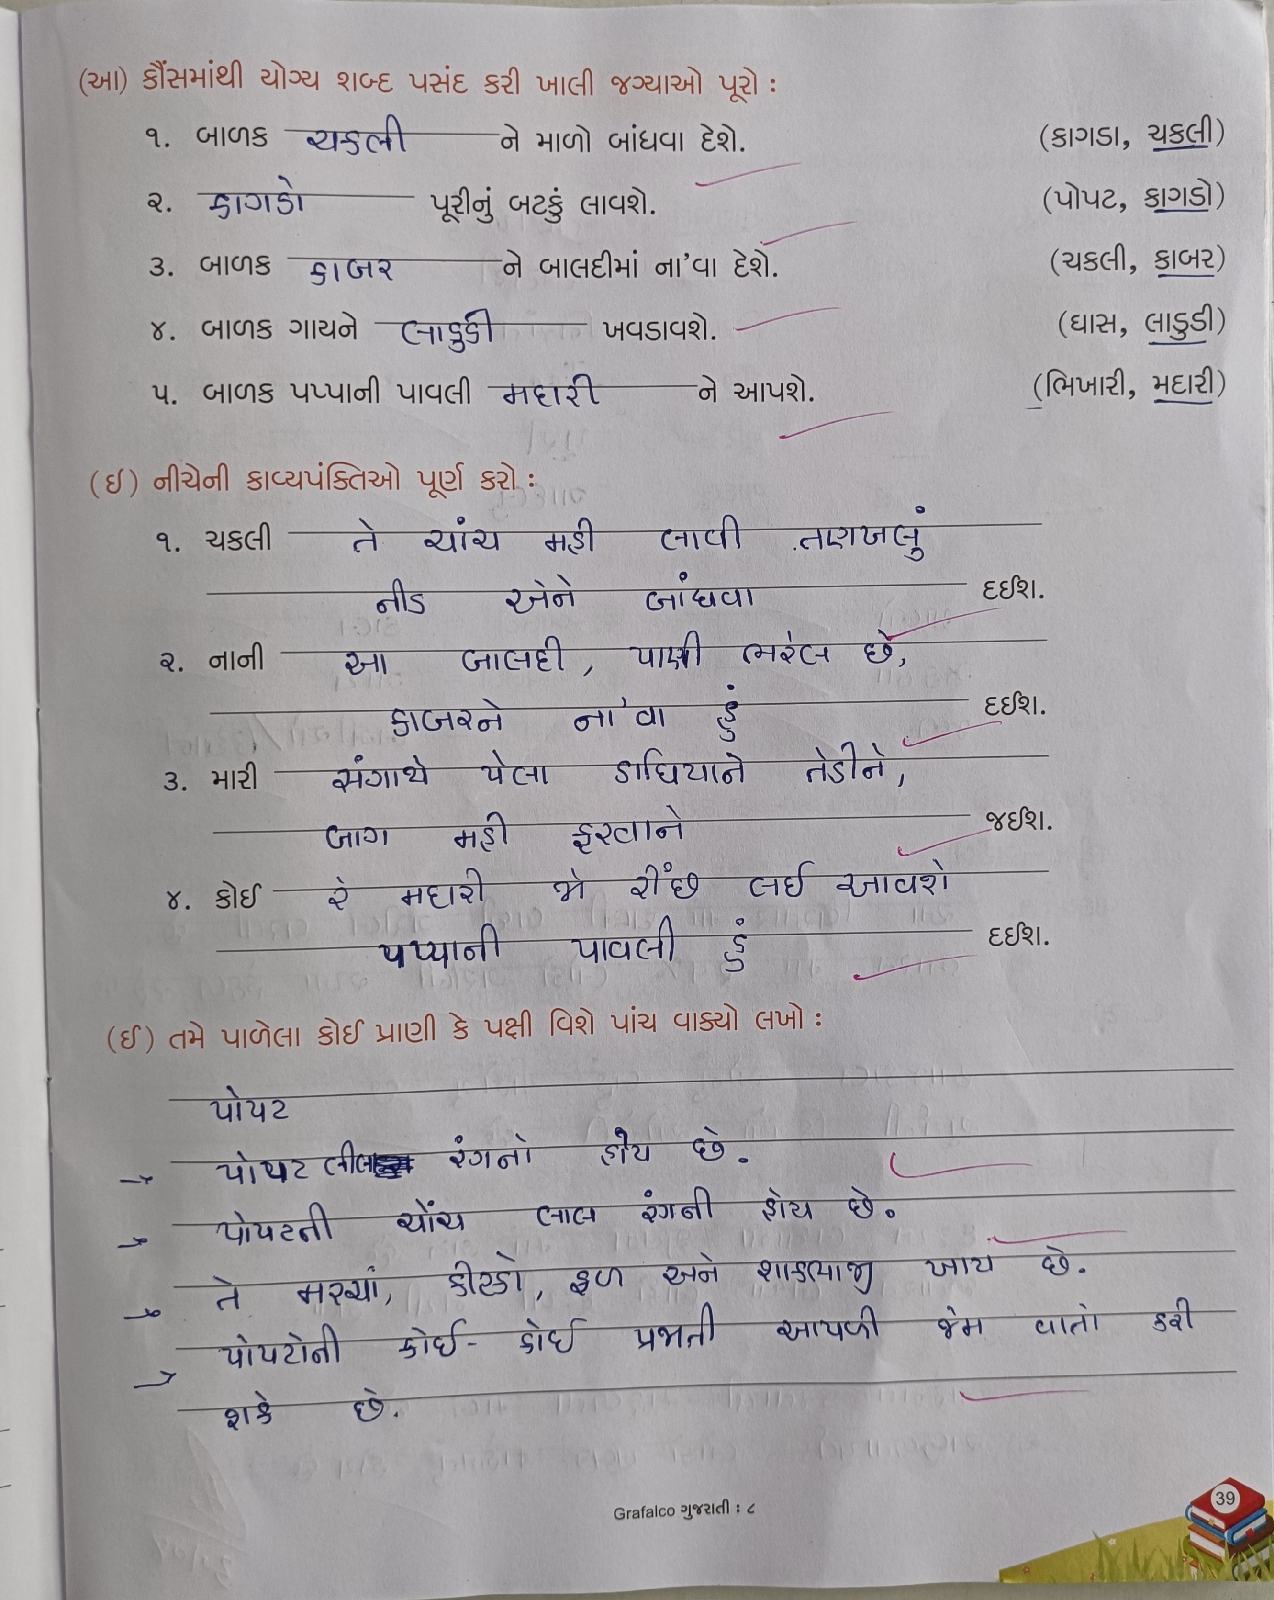 (આ) કૌંસમાંથી યોગ્ય શબ્દ પસંદ કરી ખાલી જગ્યાઓ પૂરો :
૧. બાળક ચકલી ને માળો બાંધવા દેશે. (કાગડા, ચકલી)
૨. કાગડો પૂરીનું બટકું લાવશે. (પોપટ, કાગડો)
૩. બાળક કાબર ને બાલદીમાં ના'વા દેશે. (ચકલી, કાબર)
૪. બાળક ગાયને લાડુડી ખવડાવશે. (ઘાસ, લાડુડી)
૫. બાળક પપ્પાની પાવલી મદારી ને આપશે. (ભિખારી, મદારી)
(ઇ) નીચેની કાવ્યપંક્તિઓ પૂર્ણ કરો :
૧. ચકલી તે ચાંચ મહી લાવી તણખલું
નીડ એને બાંધવા દઈશ.
૨. નાની આ બાલદી, પાણી ભરેલ છે,
કાબરને ના'વા હું દઈશ.
૩. મારી સંગાથે પેલા ડાઘિયાને તેડીને,
બાગ મહી ફરવાને જઈશ.
૪. કોઈ રે મદારી જો રીંછ લઈ આવશે
પપ્પાની પાવલી હું દઈશ.
(ઈ) તમે પાળેલા કોઈ પ્રાણી કે પક્ષી વિશે પાંચ વાક્યો લખો :
પોપટ
→ પોપટ લીલા રંગનો હોય છે.
→ પોપટની ચોંચ લાલ રંગની હોય છે.
→ તે મરચાં, કીટકો, ફળ અને શાકભાજી ખાય છે.
→ પોપટોની કોઈ-કોઈ પ્રજાતી આપણી જેમ વાતો કરી
શકે છે.
Grafalco ગુજરાતી : ૮
39